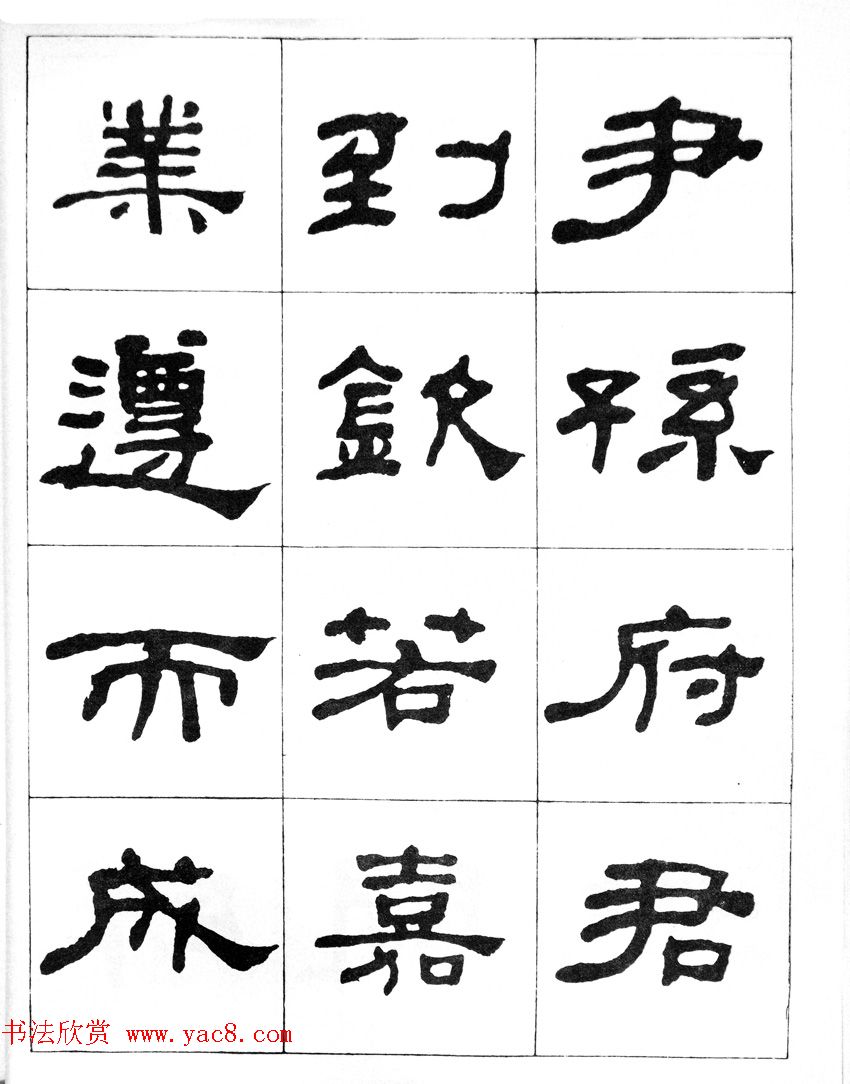 尹孫府君
到欽若嘉
業遵而成
书法欣赏 www.yac8.com